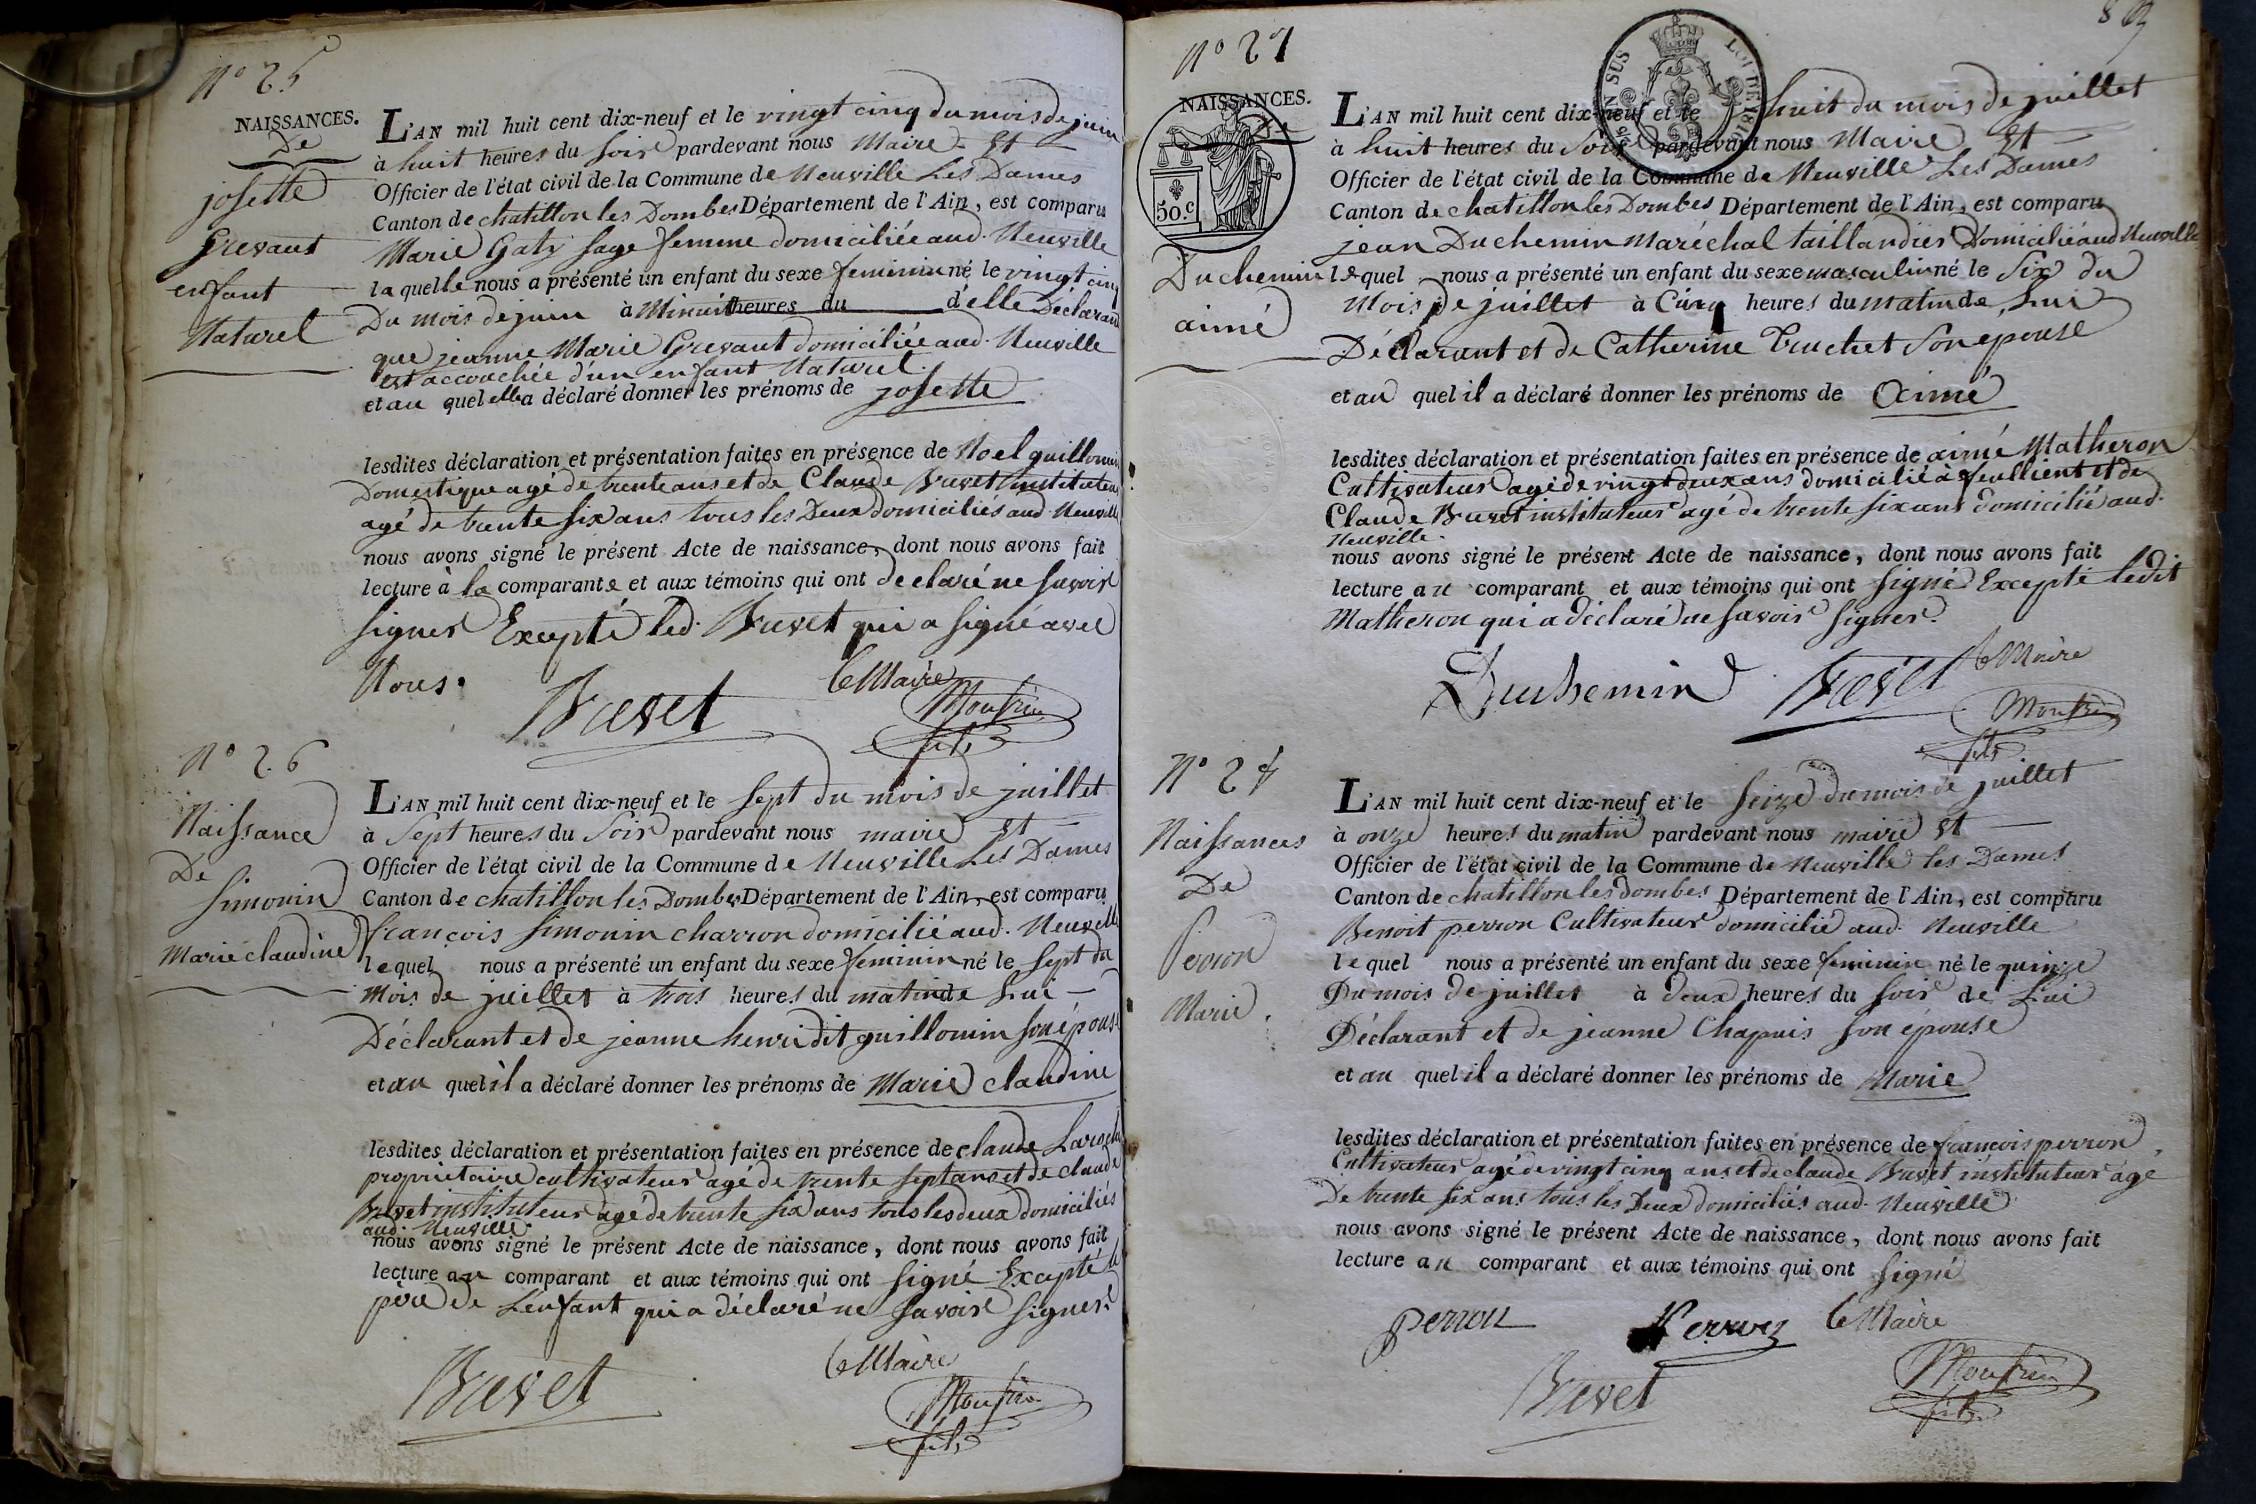 N° 25
NAISSANCES.
De
josette
Grevaut
enfant
Naturel
L'AN mil huit cent dix-neuf et le vingt cinq du mois de juin
à huit heures du soir pardevant nous Maire Et
Officier de l'état civil de la Commune de Neuville Les Dames
Canton de chatillon les Dombes Département de l'Ain, est comparu
Marie Galy sage femme domiciliée aud. Neuville
laquelle nous a présenté un enfant du sexe feminin né le vingt cinq
Du mois de juin à Minuit heures du d'elle Déclarant
que jeanne Marie Grevaut domiciliée aud. Neuville
est accouchée d'un enfant Naturel.
et au quel elle a déclaré donner les prénoms de josette
lesdites déclaration et présentation faites en présence de Noel guillomin
Domestique agé de trente ans et de Claude Buvet instituteur
agé de trente six ans tous les Deux domiciliés aud Neuville
nous avons signé le présent Acte de naissance, dont nous avons fait
lecture à la comparante et aux témoins qui ont declaré ne savoir
signer Excepté led. Buvet qui a signé avec
Nous.
Buvet
le Maire
Monfrin
fils
N° 26
Naissance
De
Simonin
Marie claudine
L'AN mil huit cent dix-neuf et le sept du mois de juillet
à sept heures du soir pardevant nous maire Et
Officier de l'état civil de la Commune de Neuville Les Dames
Canton de chatillon les Dombes Département de l'Ain, est comparu
françois Simonin charron domicilié aud. Neuville
lequel nous a présenté un enfant du sexe feminin né le sept du
Mois de juillet à trois heures du matin de Lui
Déclarant et de jeanne henri dit guillomin son épouse
et au quel il a déclaré donner les prénoms de Marie claudine
lesdites déclaration et présentation faites en présence de claude Laroche
proprietaire cultivateur agé de trente sept ans et de claude
Buvet instituteur agé de trente six ans tous les deux domiciliés
aud. Neuville.
nous avons signé le présent Acte de naissance, dont nous avons fait
lecture au comparant et aux témoins qui ont signé Excepté le
père de L'enfant qui a déclaré ne savoir signer.
Buvet
le Maire
Monfrin
fils
N° 27
NAISSANCES.
50.C
Duchemin
aimé
L'AN mil huit cent dix-neuf et le huit du mois de juillet
à huit heures du soir pardevant nous Maire Et
Officier de l'état civil de la Commune de Neuville Les Dames
Canton de chatillon les Dombes Département de l'Ain, est comparu
jean Duchemin Maréchal taillandier Domicilié aud Neuville
lequel nous a présenté un enfant du sexe masculin né le six du
Mois de juillet à Cinq heures du matin de Lui
Déclarant et de Catherine Truchet son epouse
et au quel il a déclaré donner les prénoms de Aimé
lesdites déclaration et présentation faites en présence de aimé Matheron
Cultivateur agé de vingt deux ans domicilié à feullient et de
Claude Buvet instituteur agé de trente six ans domicilié aud.
Neuville.
nous avons signé le présent Acte de naissance, dont nous avons fait
lecture au comparant et aux témoins qui ont signé Excepté ledit
Matheron qui a déclaré ne savoir signer.
Duchemin
Buvet
le Maire
Monfrin
fils
N° 28
Naissances
De
Perron
Marie.
L'AN mil huit cent dix-neuf et le seize du mois de juillet
à onze heures du matin pardevant nous maire Et
Officier de l'état civil de la Commune de Neuville les Dames
Canton de chatillon les dombes Département de l'Ain, est comparu
Benoit perron Cultivateur domicilié aud. Neuville
lequel nous a présenté un enfant du sexe feminin né le quinze
Du mois de juillet à deux heures du soir de Lui
Déclarant et de jeanne Chapuis son épouse
et au quel il a déclaré donner les prénoms de Marie
lesdites déclaration et présentation faites en présence de françois perron
Cultivateur agé de vingt cinq ans et de claude Buvet instituteur agé
De trente six ans tous les Deux domiciliés aud. Neuville
nous avons signé le présent Acte de naissance, dont nous avons fait
lecture au comparant et aux témoins qui ont signé
perron
Perron
le Maire
Buvet
Monfrin
fils